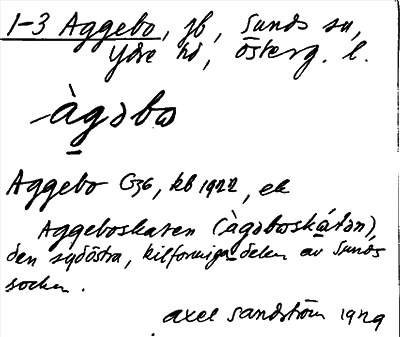 1-3 Aggebo, gb, Sunds sn,
Ydre hd, österg. l.
àgəbω
Aggebo G36, kb 1922, ek
Aggeboskaten (àgəbωskátən),
den sydöstra, kilformiga delen av Sunds
socken.
Axel Sandström 1929